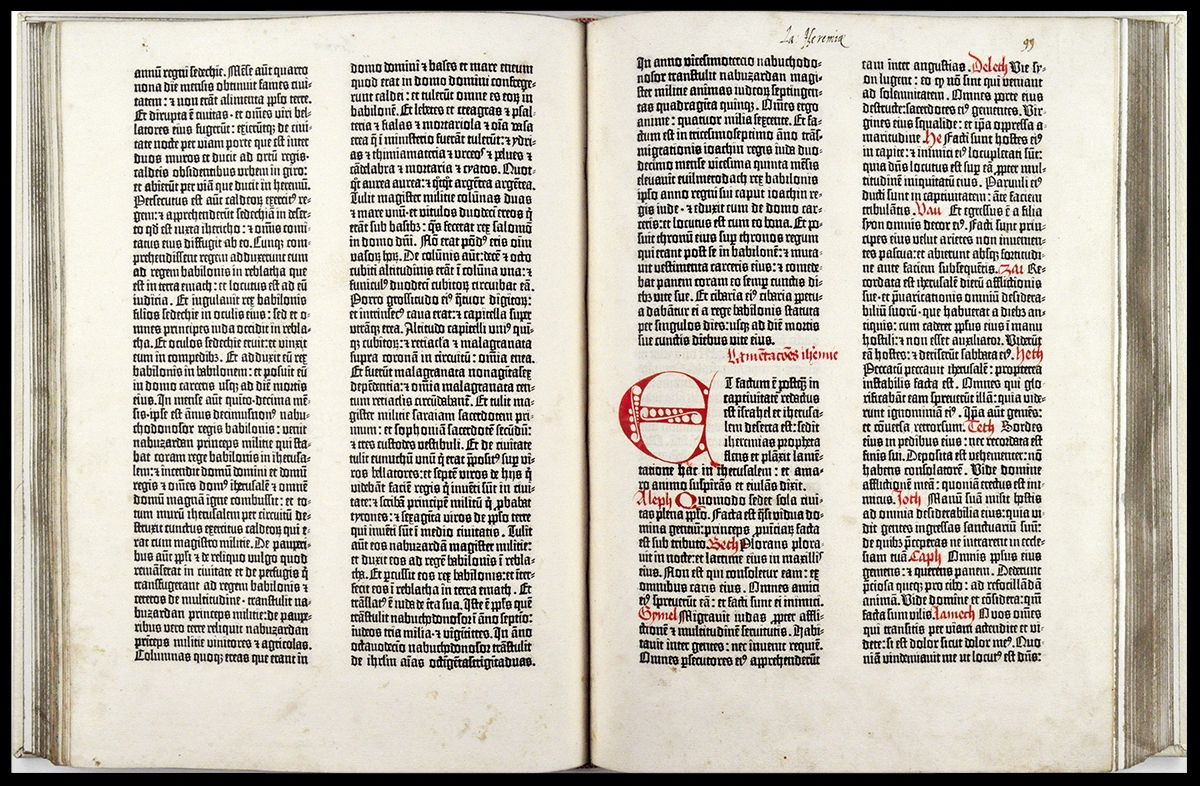 annū regni sedechie. Mēse aūt quarto
nona die mensis obtinuit fames civi-
tatem: ⁊ non erāt alimenta pp̄lo terre.
Et dirupta ē civitas · et om̄es viri bel-
latores eius fugerūt: exierūtq; de civi-
tate nocte per viam porte que est inter
duos muros et ducit ad ortū regis·
caldeis obsidentibus urbem in giro:
et abierūt per viā que ducit in heremū.
Persecutus est aūt caldeoꝝ exercit⁹ re-
gem: ⁊ apprehenderūt sedechiā in deser-
to qd̄ est iuxta ihericho: ⁊ om̄is comi-
tatus eius diffugit ab eo. Cunqꝫ com-
prehendissent regem adduxerunt eum
ad regem babilonis in reblatha que
est in terra emath: et locutus est ad eū
iudicia. Et iugulavit rex babilonis
filios sedechie in oculis eius: sed et o-
mnes principes iuda occidit in rebla-
tha. Et oculos sedechie eruit: et vinxit
eum in compedibꝫ. Et adduxit eū rex
babilonis in babilonem: et posuit eū
in domo carceris usqꝫ ad diē mortis
eius. In mense aūt quīto · decima mē-
sis · ipse est ānus decimusnon⁹ nabu-
chodonosor regis babilonis: venit
nabuzardan princeps militie qui sta-
bat coram rege babilonis in iherusa-
lem: ⁊ incendit domū domini et domū
regis ⁊ om̄es domꝰ iherusalē ⁊ omnē
domū magnā igne combussit: et to-
tum murū iherusalem per circuitū de-
struxit cunctus exercitus caldeoꝝ qui e-
rat cum magistro militie. De pauperi-
bus aūt pp̄li ⁊ de reliquo vulgo quod
remāserat in civitate et de perfugis q̄
transfugerant ad regem babilonis ⁊
ceteros de multitudine · transtulit na-
buzardan princeps militie: de paupe-
ribus vero terre reliquit nabuzardan
prīceps militie vinitores ⁊ agricolas.
Columnas quoqꝫ ereas que erant in
domo domini ⁊ bases et mare eneum
quod erat in domo domini confrege-
runt caldei: et tulerūt omne es eoꝝ in
babilonē. Et lebetes et creagras ⁊ psal-
teria ⁊ fialas ⁊ mortariola ⁊ oīa vasa
erea q̄ ī ministerio fuerāt tulerūt: ⁊ ydri-
as ⁊ thimiamateria ⁊ urceos ⁊ pelues ⁊
cādelabra ⁊ mortaria ⁊ cyatos. Quot-
q̄t aurea aurea: ⁊ q̄tq̄t argētea argētea.
Tulit magister militie colūnas duas
⁊ mare unū · et vitulos duodecī ereos q̄
erāt sub basibꝫ: q̄s fecerat rex salomō
in domo dn̄i. Nō erat pōd⁹ eris oīm
vasoꝝ hoꝝ. De colūnis aūt: decē ⁊ octo
cubiti altitudinis erāt ī colūna una: ⁊
funicul⁹ duodecī cubitoꝝ circuibat eā.
Porro grossitudo ei⁹ q̄tuor digitoꝝ:
et intrinsec⁹ cava erat: ⁊ capitella super
utrāqꝫ erea. Altitudo capitelli uni⁹ quī-
qꝫ cubitoꝝ: ⁊ retiacla ⁊ malagranata
supra coronā in circuitū: omīa erea.
Et fuerūt malagranata nonagītasex
depēdentia: ⁊ om̄ia malagranata cen-
tum retiaclis circūdabant̄. Et tulit ma-
gister militie saraiam sacerdotem pri-
mum: et sophoniā sacerdotē secūdū:
⁊ tres custodes vestibuli. Et de civitate
tulit eunuchū unū q̄ erat p̄posit⁹ sup̄ vi-
ros bellatores: et septē viros de hijs q̄
videbāt faciē regis q̄ invēti sūt in civi-
tate: ⁊ scribā principē militū q̄ ꝓbabat
tyrones: ⁊ sexagīta viros de pp̄lo terre
qui invēti sūt ī medio civitatis. Tulit
aūt eos nabuzardā magister militie:
et duxit eos ad regē babilonis ī rebla-
tha. Et p̄cussit eos rex babilonis: et īter-
fecit eos ī reblatha in terra emath. Et
trāslat⁹ ē iuda de t̄ra sua. Iste ē pp̄ls quē
trāstulit nabuchodonosor ī āno septīo:
iudeos tria milia · ⁊ vigītitres. In āno
octavodecīo nabuchodonosor trāstulit
de ihrl̄m aīas octīgētastrigītaduas.
La: Ieremiæ
99
In anno vicesimotercio nabuchodo-
nosor transtulit nabuzardan magi-
ster militie animas iudeoꝝ septingen-
tas quadragīta quinqꝫ. Om̄es ergo
anime: quatuor milia sexcente. Et fa-
ctum est in tricesimoseptimo āno trās-
migrationis ioachin regis iuda duo-
decimo mense vicesima quinta mēsis
elevavit evilmerodach rex babilonis
ipso anno regni sui caput ioachin re-
gis iude · ⁊ eduxit eum de domo car-
ceris: et locutus est cum eo bona. Et po-
suit thronū eius sup̄ thronos regum
qui erant post se in babilonē: ⁊ muta-
vit vestimenta carceris eius: ⁊ comede-
bat panem coram eo semp̄ cunctis di-
ebꝫ vite sue. Et cibaria ei⁹ cibaria p̄petu-
a dabātur ei a rege babilonis statuta
per singulos dies: usqꝫ ad diē mortis
sue cunctis diebus vite eius.
Lamētacōes iheremie
Et factum ē postq̄ꝫ in
captivitatē redactus
est israhel et iherusa-
lem deserta est: sedit
iheremias propheta
flens et plāxit lamē-
tatione hāc in iherusalem: et ama-
ro animo suspirās et eiulās dixit.
Aleph Quomodo sedet sola civi-
tas plena pp̄lo. Facta est q̄si vidua do-
mina gentiū: princeps ꝓvīciaꝝ facta
est sub tributo. Beth Plorans plora-
vit in nocte: et lacrime eius in maxill̄
eius. Non est qui consoletur eam: ex
omnibus caris eius. Omnes amici
ei⁹ spreverūt eā: et facti sunt ei inimici.
Gymel Migravit iudas ꝓpter affli-
ctionē ⁊ multitudinē servitutis. Habi-
tavit inter gentes: nec invenit requiē.
Omnes p̄secutores ei⁹ apprehenderūt
eam inter angustias. Deleth Vie sy-
on lugent: eo q̄ nō sint qui veniant
ad solemnitatem. Omnes porte eius
destructe: sacerdotes ei⁹ gementes. Vir-
gines eius squalide: et ip̄a oppressa a-
maritudine. He Facti sunt hostes ei⁹
in capite: ⁊ inimici ei⁹ locupletati sūt:
quia dn̄s locutus est sup̄ eā ꝓpter mul-
titudinē iniquitatū eius. Parvuli ei⁹
ducti sunt in captivitatem: āte faciem
tribulātis. Vau Et egressus ē a filia
syon omnis decor ei⁹. Facti sunt prin-
cipes eius velut arietes non invenien-
tes pascua: et abierunt absqꝫ fortitudi-
ne ante faciem subsequētis. Zai Re-
cordata est iherusalē dierū afflictionis
sue · et p̄varicationis omniū desidera-
biliū suorū · que habuerat a diebꝫ an-
tiquis: cum caderet pp̄lus eius ī manu
hostili: ⁊ non esset auxiliator. Viderūt
eā hostes: ⁊ deriserūt sabbata ei⁹. Heth
Peccatū peccavit iherusalē: propterea
instabilis facta est. Omnes qui glo-
rificabāt eam spreverūt illā: quia vide-
runt ignominiā ei⁹. Ip̄a aūt gemēs:
et cōversa retrorsum. Teth Sordes
eius in pedibus eius: nec recordata est
finis sui. Deposita est vehementer: nō
habens consolatorē. Vide domine
afflictionē meā: quoniā erectus est ini-
micus. Joth Manū suā misit hostis
ad omnia desiderabilia eius: quia vi-
dit gentes ingressas sanctuariū suū:
de quibꝫ p̄ceperas ne intrarent in eccle-
siam tuā. Caph Omnis pp̄lus eius
gemens: ⁊ querens panem. Dederunt
preciosa queqꝫ pro cibo: ad refocillādā
animā. Vide domine et cōsidera: q̄m
facta sum vilis. Lamech O vos om̄es
qui transitis per viam attendite et vi-
dete: si est dolor sicut dolor me⁹. Quo-
niā vindemiavit me ut locut⁹ est dn̄s: